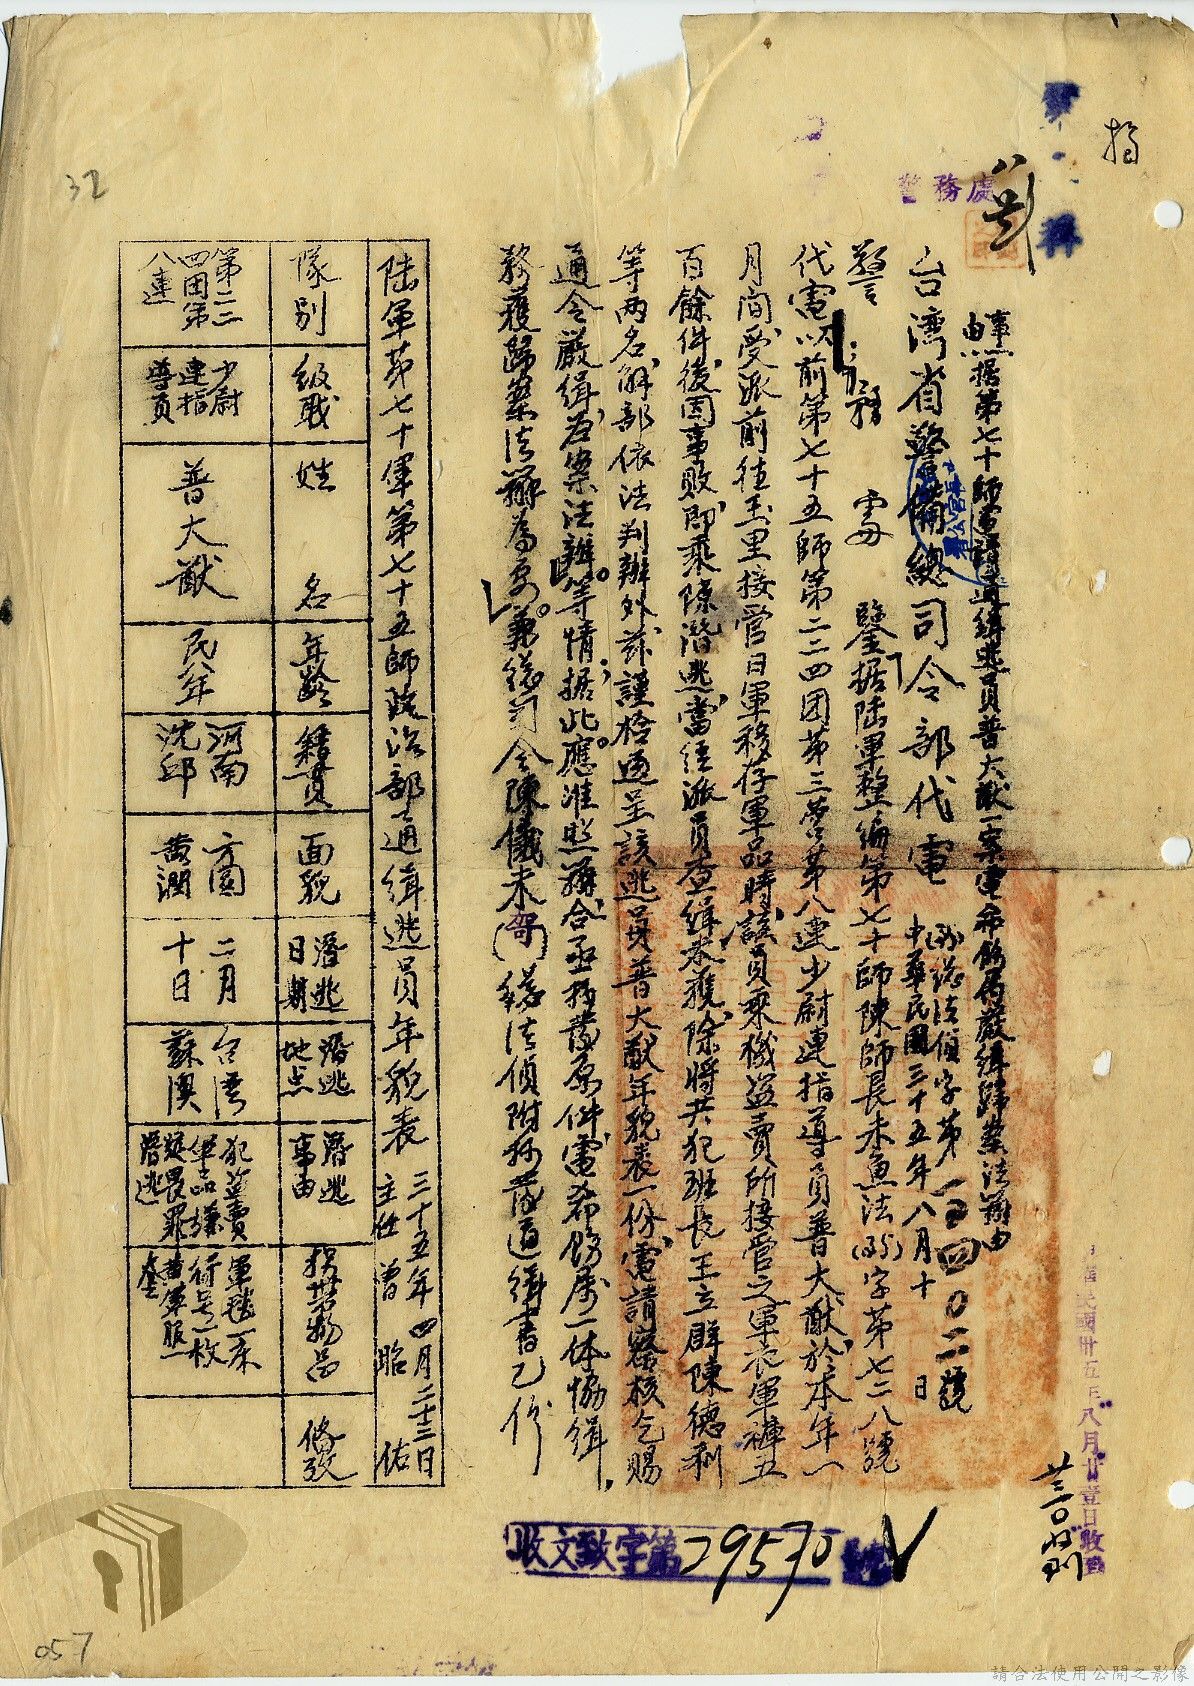 摘
警務處
32
事由
據第七十師電請通緝逃員普大猷一案電希飭屬嚴緝歸案法辦由
台灣省警備總司令部代電
法偵字第一三四0二號
中華民國三十五年八月十 日
警務處 鑒據陸軍整編第七十師陳師長未魚法字第七二八號
代電以前第七十五師第二二四团第三营第八連少尉連指導員普大猷於本年一
月間受派前往玉里接管日軍移存軍品時該員乘機盜賣所接管之軍衣軍褲五
百餘件後因事敗即乘隙潛逃當經派員查緝未獲除將共犯班長王立群陳德利
等两名解部依法判辦外茲謹檢通呈該逃員普大猷年貌表一份電請察核乞賜
通令嚴緝归案法辦等情據此應准照辦合亟抄發原件電希飭屬一体協緝
務獲歸案法辦為要兼總司令陳儀未(哿)總法偵附抄發通緝書乙份
陸軍第七十軍第七十五師政治部通緝逃員年貌表 三十五年四月二十三日
主任 曾昭佑
隊別 級職 姓名 年齡 籍貫 面貌 潛逃日期 潛逃地点 潛逃事由 拐帶物品 備考
第二二四团第八連 少尉連指導員 普大猷 民八年 河南沈邱 方圓黄潤 二月十日 台湾蘇澳 犯盜賣軍品嫌疑畏罪潛逃 軍毯一床符号一枚黄軍服一套
收文致字第29570號
057
請合法使用公開之影像